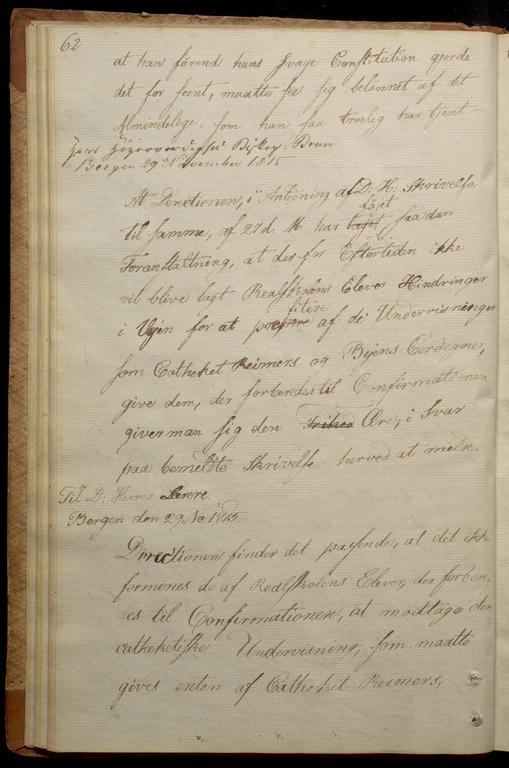 62
at han förend hans svage Constitution gjorde
det for seent, maatte see sig belönnet af det
Almindelige, som han saa troelig har tjent
Hans Höiærværdighed Biskop Brun
Bergen 29 November 1815
At Directionen, i Anledning af D: H: Skrivelse
föjet
til samme, af 27 d: M: har taget saadan
Foranstaltning, at der for Eftertiden ikke
vil blive lagt Realskolens Elever Hindringer
fitere
i Vejen for at profitere af de Undervisninger
som Catheket Reimers og Byens Cordegne,
give dem, der forberedes til Confirmationen
giver man sig den Frihed Ære, i Svar
paa bemeldte Skrivelse herved at melde.
Til D: Herrer Lærere
Bergen den 29 No: 1815
Directionen finder det passende, at det ikke
formenes de af Realskolens Elever, der forbere-
des til Confirmationen, at modtage den
catheketiske Undervisning, som maatte
gives enten af Catheket Reimers,